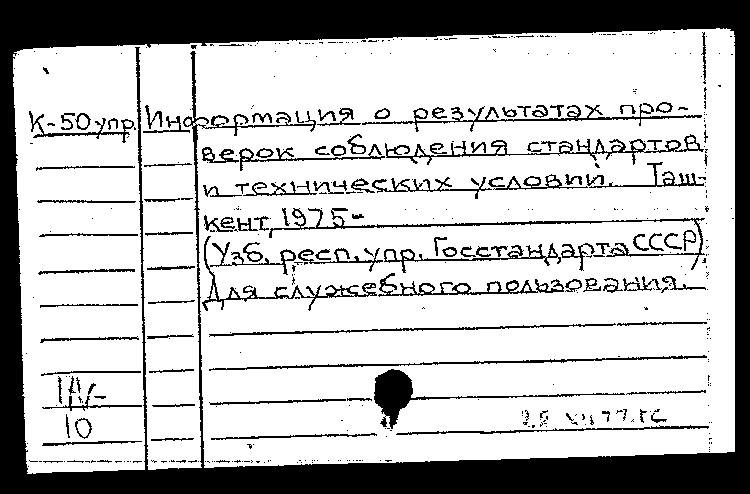 К-50 упр. Информация о результатах про-
верок соблюдения стандартов
и технических условий. Таш-
кент, 1975-
(Узб. респ. упр. Госстандарта СССР)
Для служебного пользования.
10